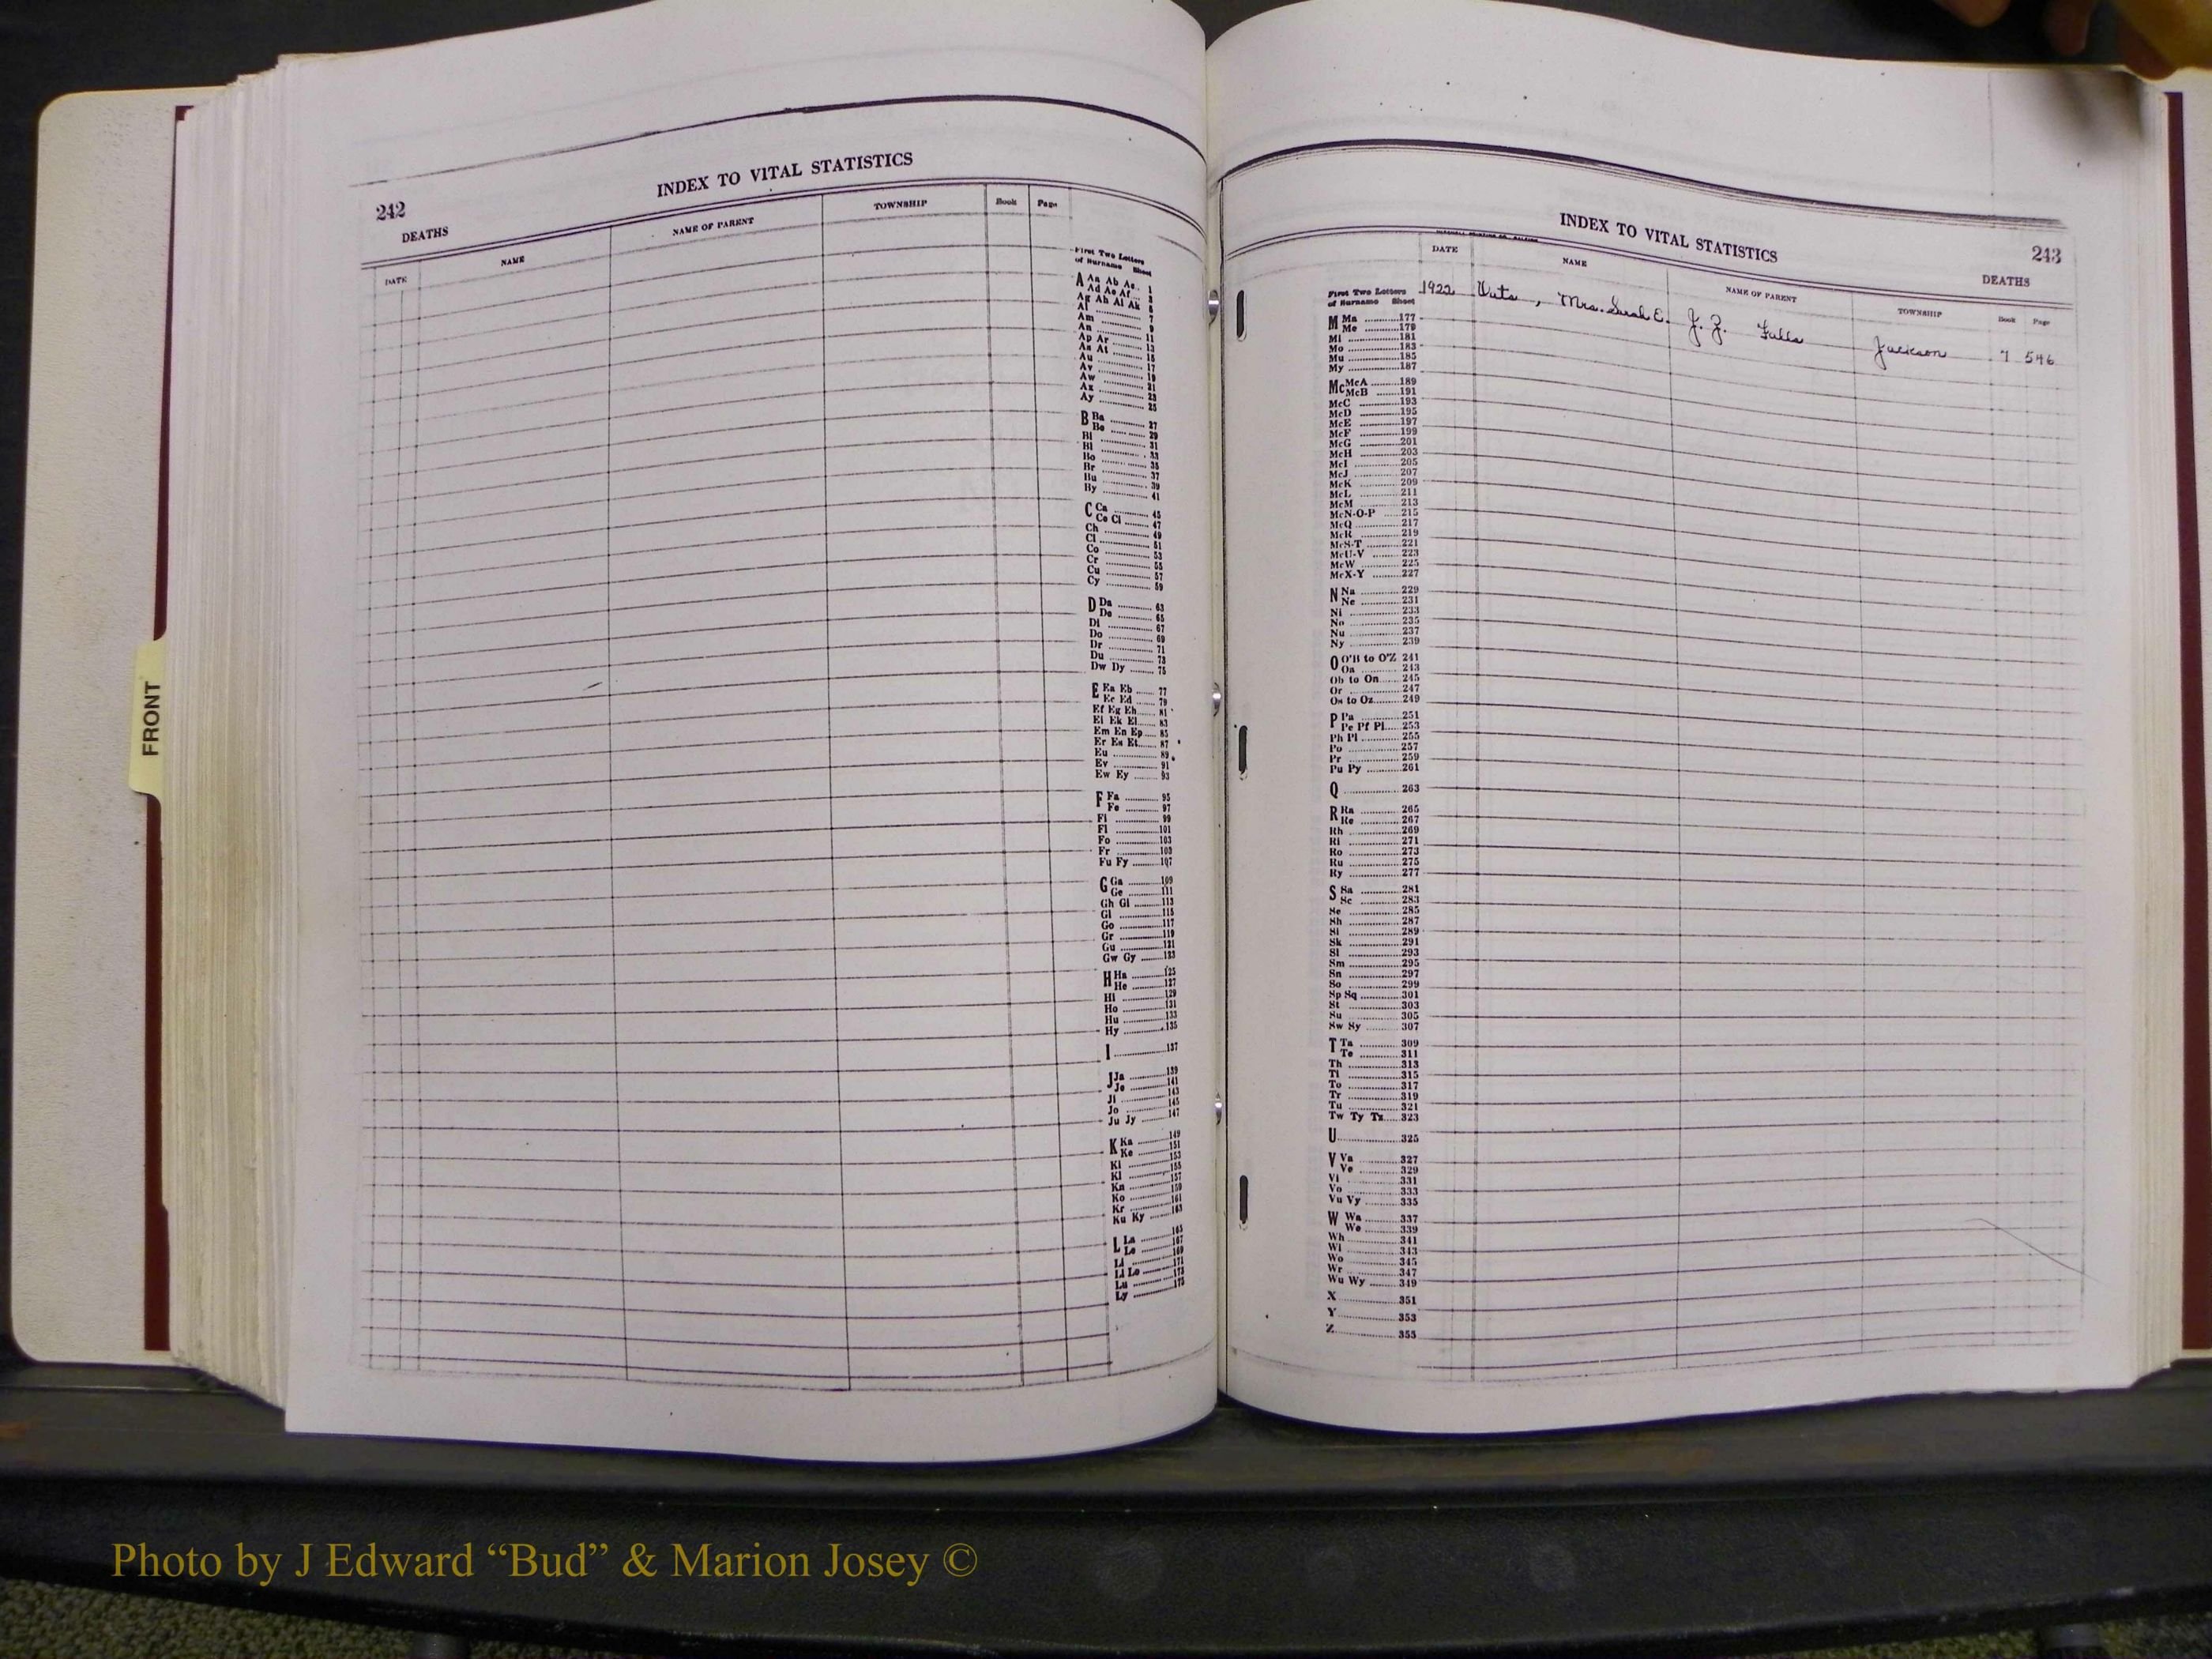 INDEX TO VITAL STATISTICS
242
DEATHS
DATE NAME NAME OF PARENT TOWNSHIP Book Page
First Two Letters
of Surname Sheet
A Aa Ab Ac.. 1
Ad Ae Af ... 3
Ag Ah Ai Ak 5
Al ............ 7
Am ............ 9
An ............ 11
Ap Ar ........ 13
As At ........ 15
Au ............ 17
Av ............ 19
Aw ............ 21
Ax ............ 23
Ay ............ 25
B Ba ............ 27
Be ............ 29
Bi ............ 31
Bl ............ 33
Bo ............ 35
Br ............ 37
Bu ............ 39
By ............ 41
C Ca ............ 45
Ce Ci ........ 47
Ch ............ 49
Cl ............ 51
Co ............ 53
Cr ............ 55
Cu ............ 57
Cy ............ 59
D Da ............ 63
De ............ 65
Di ............ 67
Do ............ 69
Dr ............ 71
Du ............ 73
Dw Dy ........ 75
E Ea Eb ...... 77
Ec Ed ...... 79
Ef Eg Eh...... 81
Ei Ek El...... 83
Em En Ep.... 85
Er Es Et...... 87
Eu ............ 89
Ev ............ 91
Ew Ey ........ 93
F Fa ............ 95
Fe ............ 97
Fi ............ 99
Fl ............101
Fo ............103
Fr ............105
Fu Fy ........107
G Ga ............109
Ge ............111
Gh Gi ........113
Gl ............115
Go ............117
Gr ............119
Gu ............121
Gw Gy ........123
H Ha ............125
He ............127
Hi ............129
Ho ............131
Hu ............133
Hy ............135
I ............137
J Ja ............139
Je ............141
Ji ............143
Jo ............145
Ju Jy ........147
K Ka ............149
Ke ............151
Ki ............153
Kl ............155
Kn ............157
Ko ............159
Kr ............161
Ku Ky ........163
L La ............165
Le ............167
Li ............169
Ll Lo ........171
Lu ............173
Ly ............175
INDEX TO VITAL STATISTICS
243
DEATHS
DATE NAME NAME OF PARENT TOWNSHIP Book Page
1922 , Mrs. Sarah E. J. Z. Falls Jackson 7 546
First Two Letters
of Surname Sheet
M Ma ............177
Me ............179
Mi ............181
Mo ............183
Mu ............185
My ............187
Mc McA ........189
McB ........191
McC ............193
McD ............195
McE ............197
McF ............199
McG ............201
McH ............203
McI ............205
McJ ............207
McK ............209
McL ............211
McM ............213
McN-O-P ......215
McQ ............217
McR ............219
McS-T ........221
McU-V ........223
McW ............225
McX-Y ........227
N Na ............229
Ne ............231
Ni ............233
No ............235
Nu ............237
Ny ............239
O O'B to O'Z 241
Oa ............243
Ob to On......245
Or ............247
Os to Oz......249
P Pa ............251
Pe Pf Pi......253
Ph Pl ........255
Po ............257
Pr ............259
Pu Py ........261
Q ............263
R Ra ............265
Re ............267
Rh ............269
Ri ............271
Ro ............273
Ru ............275
Ry ............277
S Sa ............281
Sc ............283
Se ............285
Sh ............287
Si ............289
Sk ............291
Sl ............293
Sm ............295
Sn ............297
So ............299
Sp Sq ........301
St ............303
Su ............305
Sw Sy ........307
T Ta ............309
Te ............311
Th ............313
Ti ............315
To ............317
Tr ............319
Tu ............321
Tw Ty Tz....323
U ............325
V Va ............327
Ve ............329
Vi ............331
Vo ............333
Vu Vy ........335
W Wa ............337
We ............339
Wh ............341
Wi ............343
Wo ............345
Wr ............347
Wu Wy ........349
X ............351
Y ............353
Z ............355
FRONT
Photo by J Edward “Bud” & Marion Josey ©